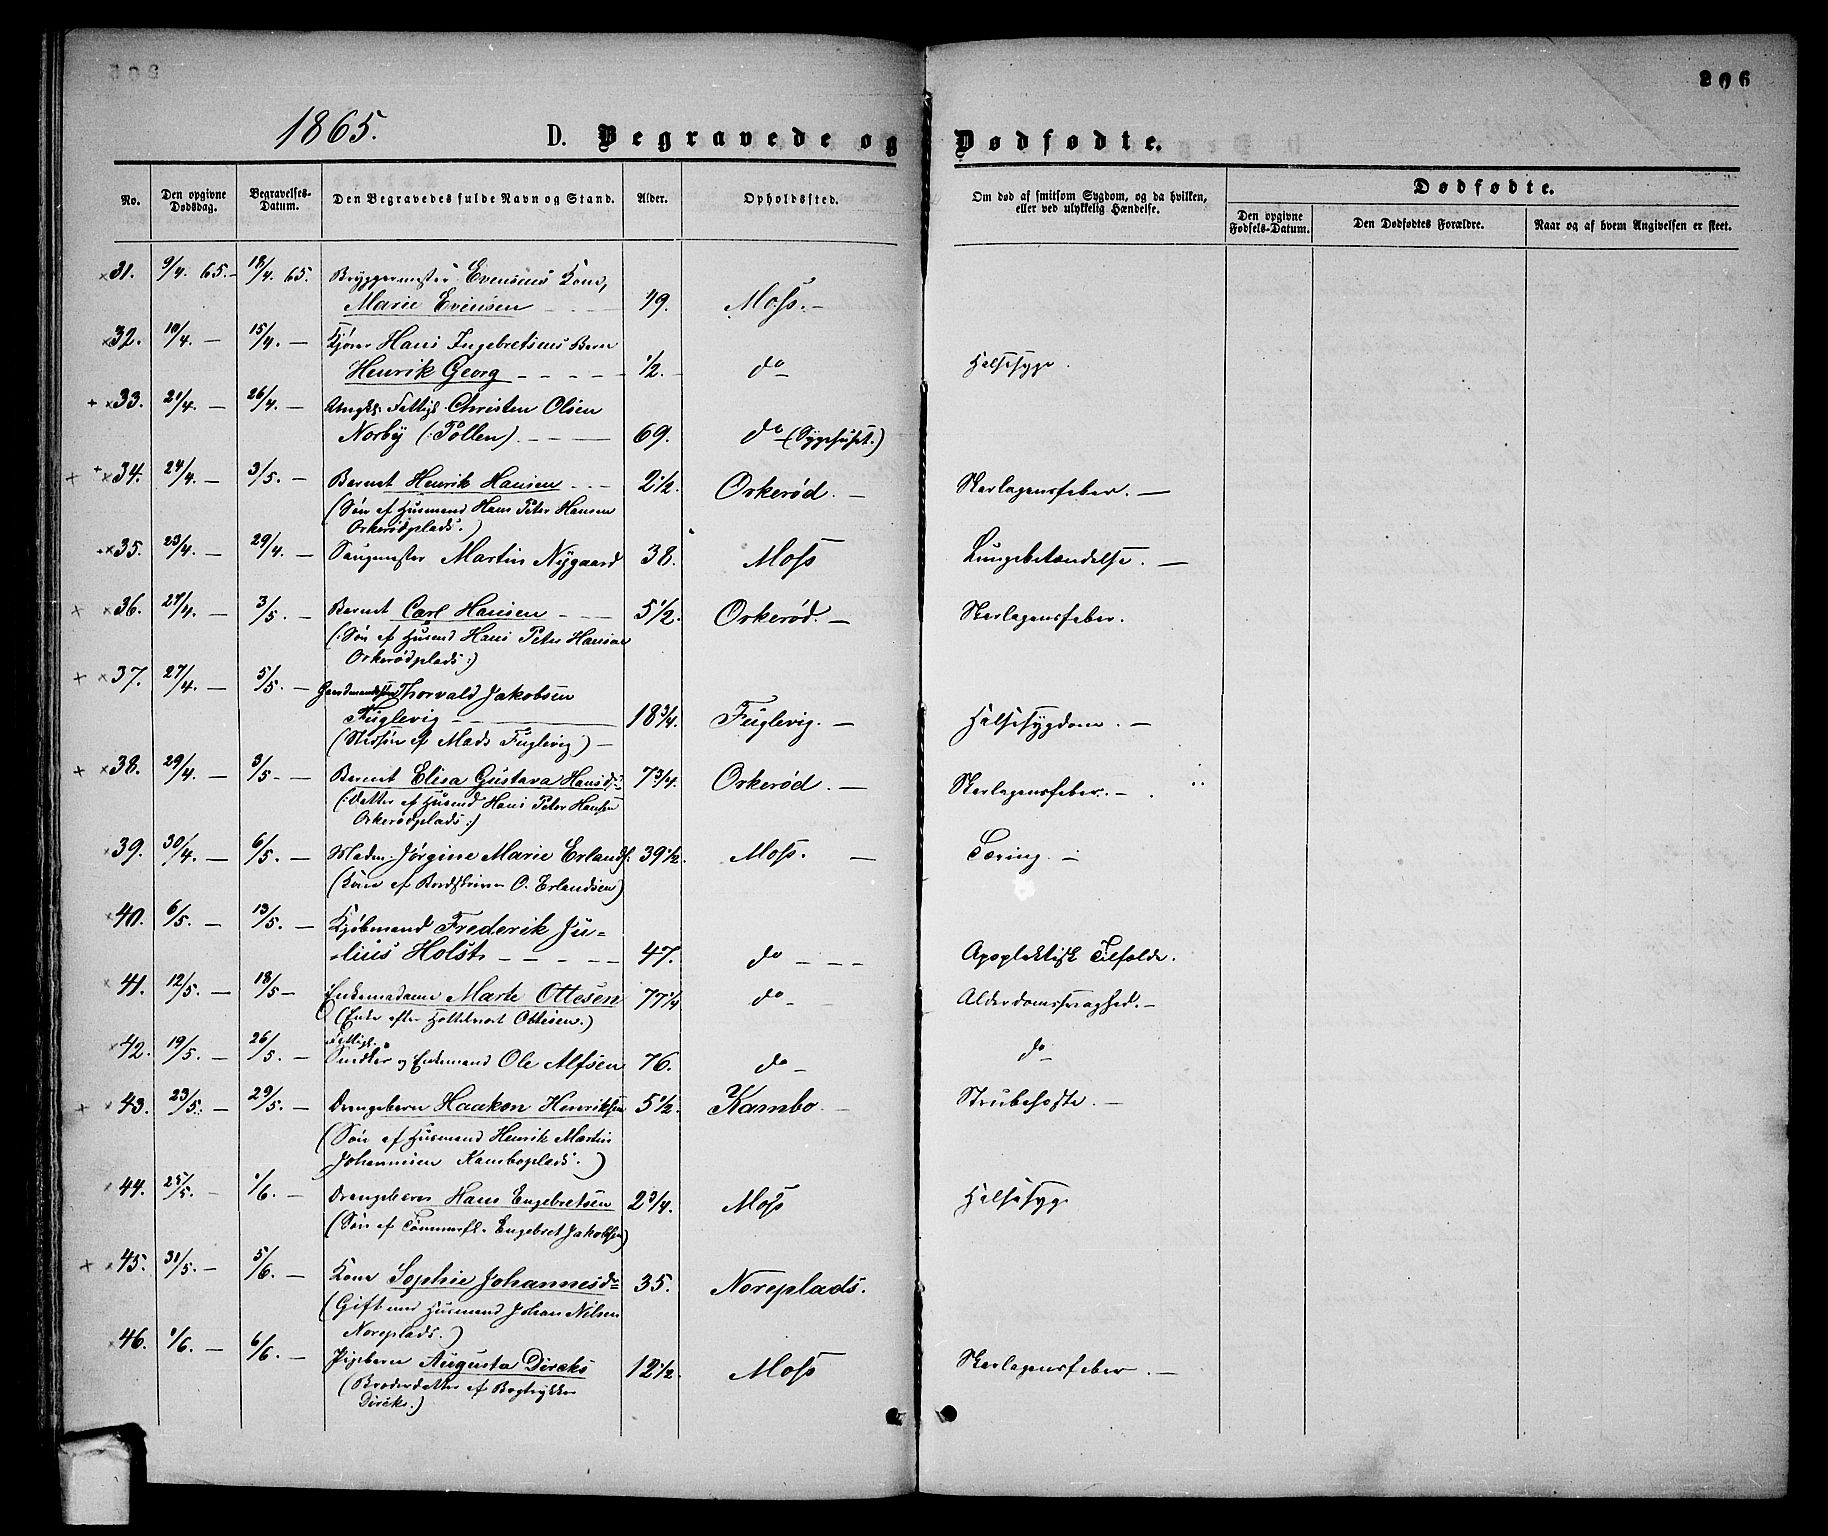 206
1865.
D. Begravede og Dødfødte.
No. Den opgivne Dødsdag. Begravelses-Datum. Den Begravedes fulde Navn og Stand. Alder. Opholdssted. Om død af smitsom Sygdom, og da hvilken, eller ved ulykkelig Hændelse. Dødfødte.
Den opgivne Fødsels-Datum. Den Dødfødtes Forældre. Naar og af hvem Angivelsen er skeet.
×31. 9/4. 65.— 18/4. 65. Bryggermester Evensens Kone,
Marie Evensen — 49. Moss.—
×32. 10/4. — 15/4. — Kjører Hans Ingebretsens Barn
Henrik Georg — 1/2. — do— Halssyge.
+ ×33. 21/4. — 26/4. — Fattigl. Christen Olsen
Norby (:Pollen). — 69. do— (Sygehuset.)
+ + ×34. 24/4. — 3/5. — Barnet Henrik Hansen — 2 1/2. Orkerød. — Skarlagensfeber. —
(Søn af Husmand Hans Peter Hansen
Orkerødplads.)
×35. 23/4. — 29/4. — Saugmester Martin Nygaard 38. Moss Lungebetændelse. —
+ ×36. 27/4. — 3/5. — Barnet Carl Hansen — 5 1/2. Orkerød. — Skarlagensfeber.
(:Søn af Husmd Hans Peter Hansen
Orkerødplads:)
+ ×37. 27/4. — 5/5. — Thorvald Jakobsen
Fuglevig — 18 3/4. Fuglevig. — Halssygdom. —
(Stedsøn af Mads Fuglevig) —
+ ×38. 29/4. — 3/5. — Barnet Elisa Gustava Hansd: 7 3/4. Orkerød. — Skarlagensfeber. —
(:Datter af Husmd Hans Peter Hansen
Orkerødplads:)
×39. 30/4. — 6/5. — Madam Jørgine Marie Erlands. 39 1/2. Moss. — Tæring. —
(Kone af O. Erlandsen)
×40. 6/5. — 13/5. — Kjøbmand Frederik Ju-
lius Holst. — 47. do — Apoplektisk Tilfælde.
×41. 12/5. — 18/5 — Enkemadame Marte Ottesen 77 1/4 do— Alderdomssvaghed. —
(Enke efter Ottesen.)
×42. 19/5. — 26/5. — Fattigl.
Snedker og Enkemand Ole Alfsen 76. do— do—
+ ×43. 23/5. — 29/5. — Drengebarn Haakon Henriksen 5 1/2. Kambo. — Strubehoste. —
(Søn af Husmand Henrik Martin
Johannesen Kamboplads.)
×44. 25/5. — 1/6. — Drengebarn Hans Engebretsen 2 3/4. Moss Halssyge
(Søn af Tømmerfl. Engebret Jakobsen)
+ ×45. 31/5. — 5/6. — Kone Sophie Johannesdr= 35. Noreplads.
(Gift med Husmand Johan Nilsen
Noreplads.)
×46. 1/6. — 6/6. — Pigebarn Augusta Dircks 12 1/2. Moss Skarlagensfeber —
(Broderdatter af Bogtrykker
Dircks.)